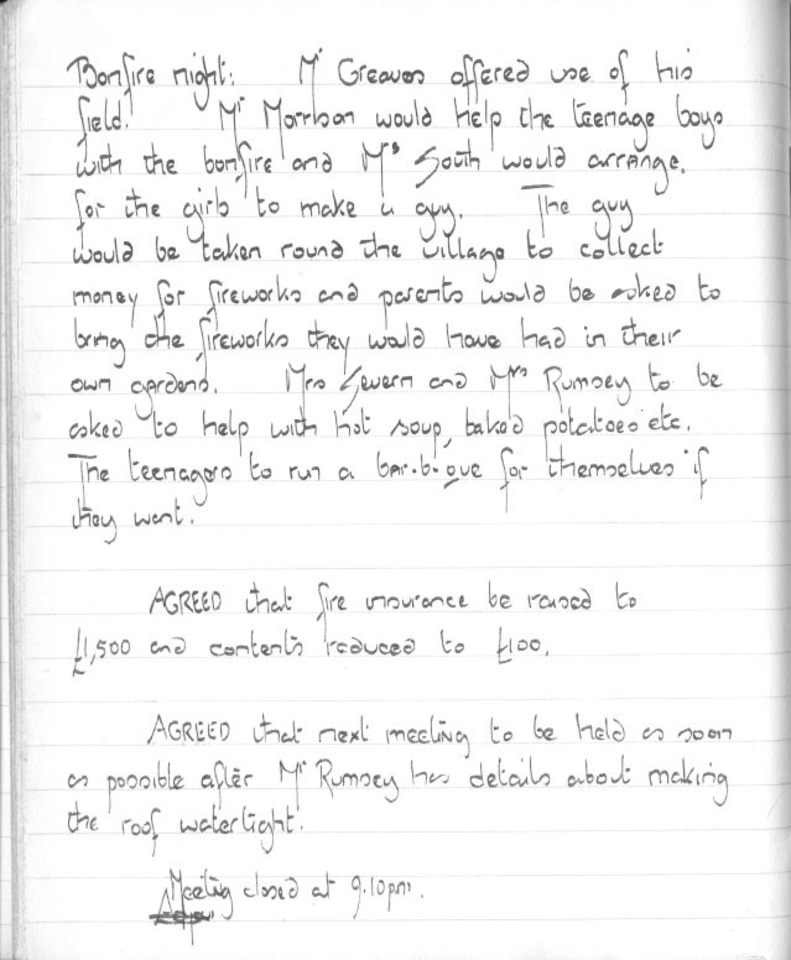 Bonfire night: Mr Greaves offered use of his
field. Mr Morrison would help the teenage boys
with the bonfire and Mrs South would arrange.
for the girls to make a guy. The guy
would be taken round the village to collect
money for fireworks and parents would be asked to
bring the fireworks they would have had in their
own gardens. Mrs Severn and Mrs Rumsey to be
asked to help with hot soup, baked potatoes etc.
The teenagers to run a bar-b-que for themselves if
they want.
AGREED that fire insurance be raised to
£1,500 and contents reduced to £100.
AGREED that next meeting to be held as soon
as possible after Mr Rumsey has details about making
the roof watertight.
Meeting closed at 9.10pm.